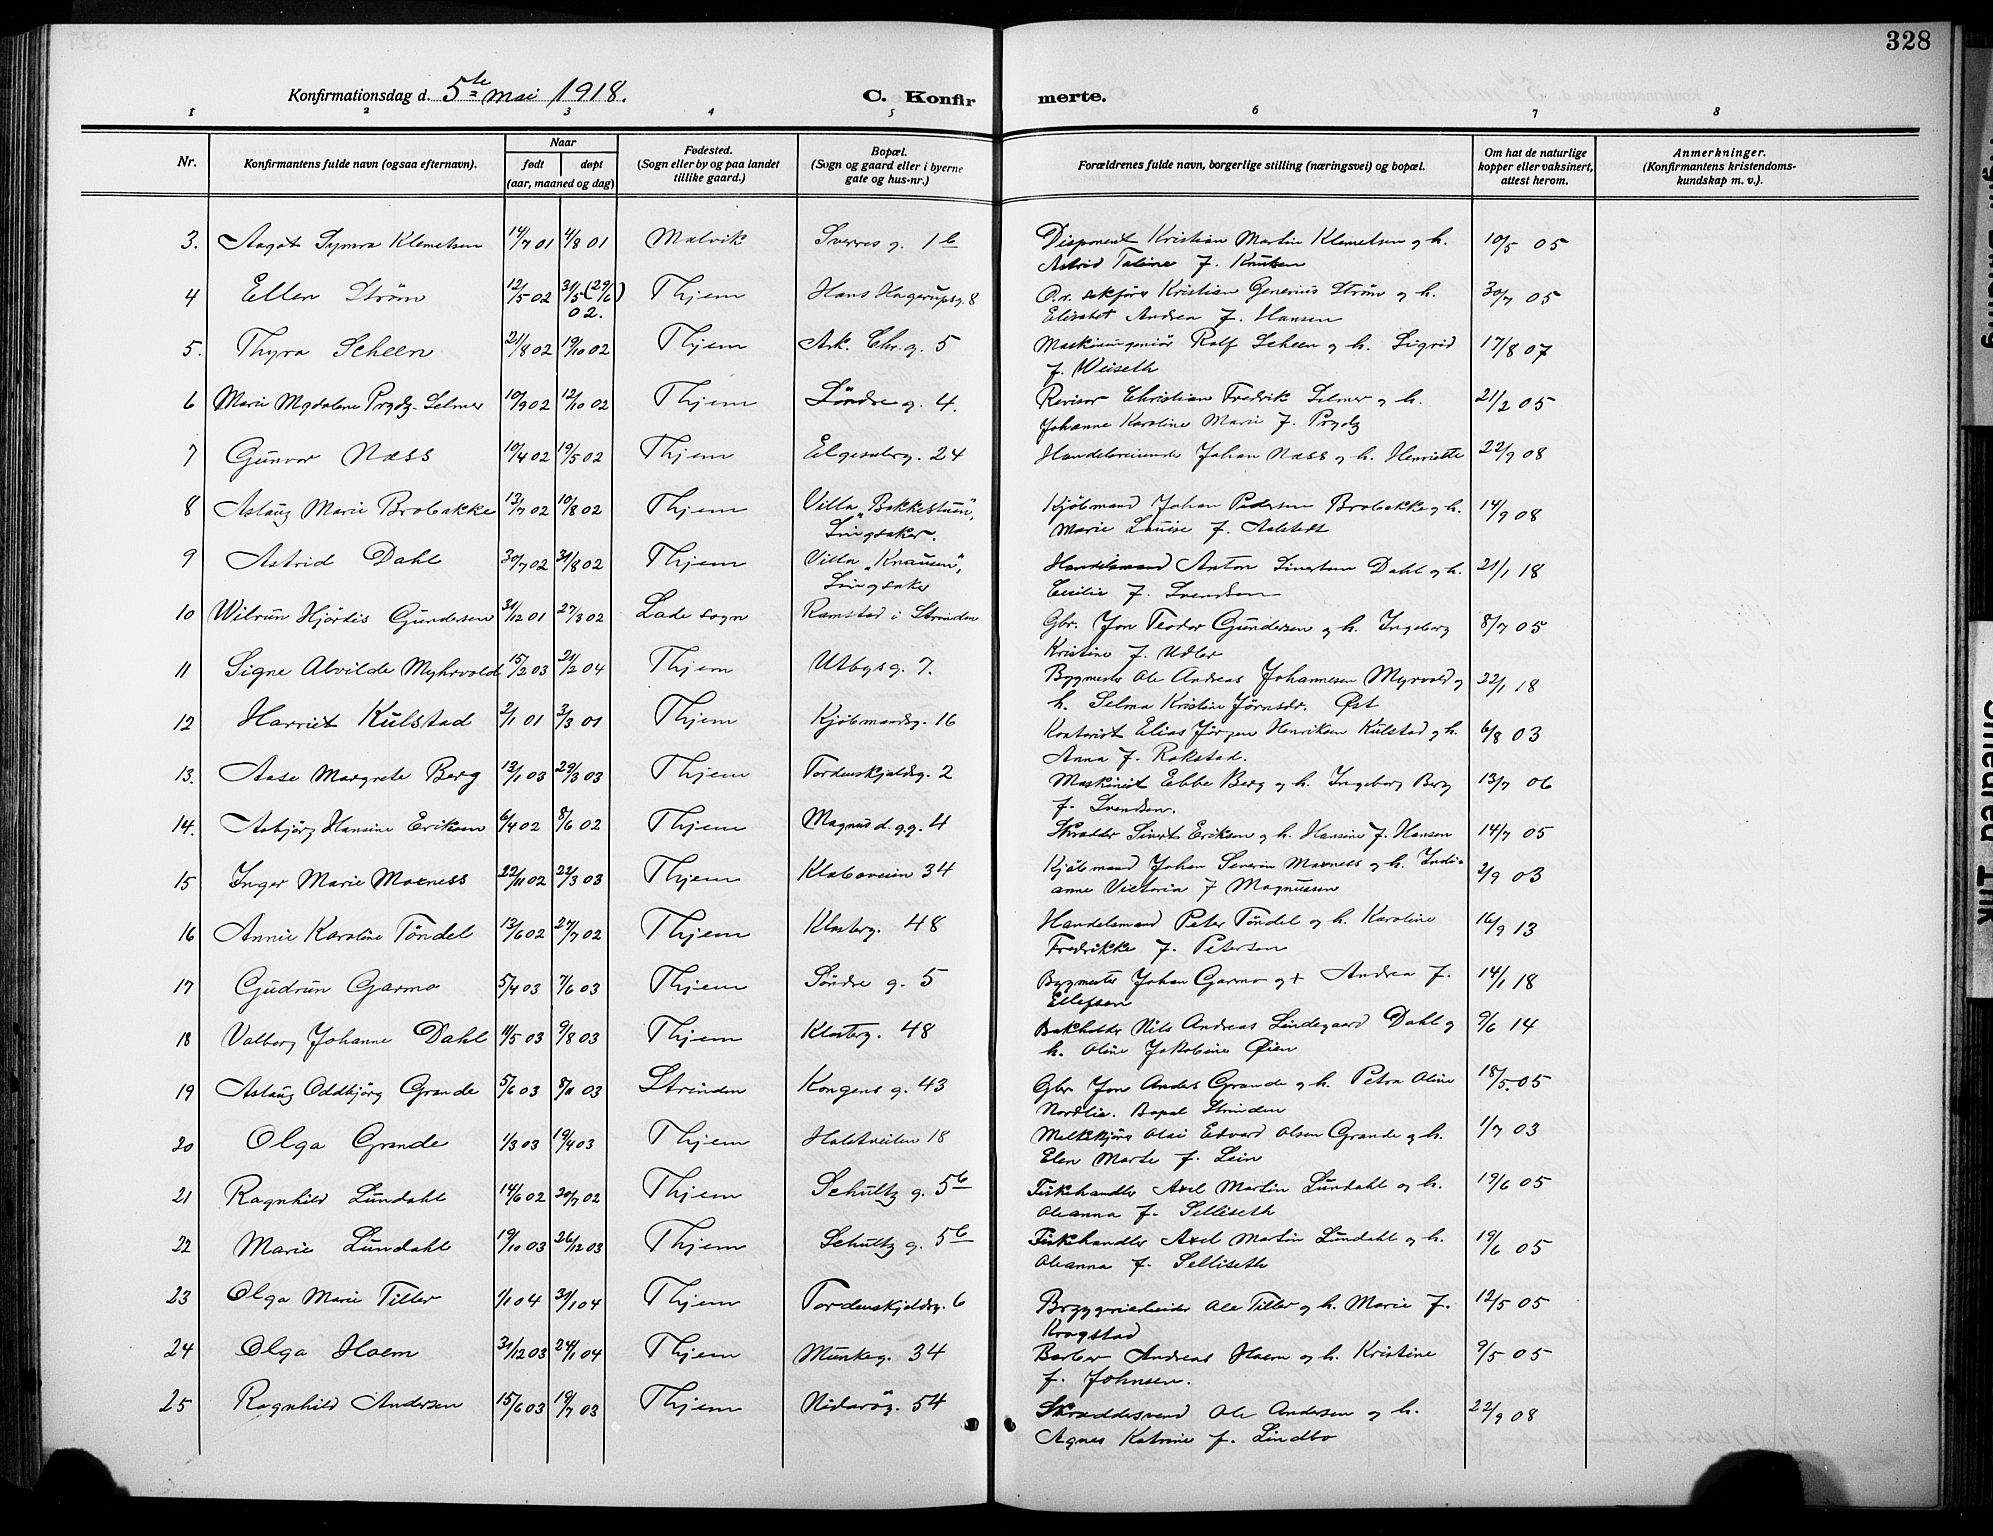 328
Konfirmationsdag d. 5te mai 1918.
C. Konfirmerte.
1 2 3 4 5 6 7 8
Nr.
Konfirmantens fulde navn (ogsaa efternavn).
Naar
født døpt
(aar, maaned og dag)
Fødested.
(Sogn eller by og paa landet
tillike gaard.)
Bopæl.
(Sogn og gaard eller i byerne
gate og hus-nr.)
Forældrenes fulde navn, borgerlige stilling (næringsvei) og bopæl.
Om hat de naturlige
kopper eller vaksinert,
attest herom.
Anmerkninger.
(Konfirmantens kristendoms-
kundskap m. v.).
3. Aagot Symra Klemetsen 14/7 01 4/8 01 Malvik Sverres g. 1b Disponent Kristian Martin Klemetsen og h. 10/5 05
Astrid Taline f. Knutsen
4 Ellen Strøm 12/5 02 31/5 (29/6) Thjem Hans Hagerupsg. 8 O.r. sakfører Kristian Generius Strøm og h. 30/7 05
02.
Elisabet Andrea f. Hansen
5. Thyra Scheen 21/8 02 19/10 02 Thjem Ark. Chr. g. 5 Maskiningeniør Rolf Scheen og h. Sigrid 17/8 07
f. Weiseth
6 Marie Mgdalene Prydz-Selmer 10/9 02 12/10 02 Thjem Söndre g. 4. Revisor Christian Fredrik Selmer og h. 21/2 05
Johanne Karoline Marie f. Prydz
7 Gunvor Næss 10/4 02 19/5 02 Thjem Elgesæterg. 24 Handelsreisende Johan Næss og h. Henriette 22/9 08
8 Aslaug Marie Brobakke 13/7 02 10/8 02 Thjem Villa "Bakkestuen", Kjøbmand Johan Pedersen Brobakke og h. 14/9 08
Singsaker. Marie Louise f. Aalstedt
9 Astrid Dahl 30/7 02 31/8 02 Thjem Villa "Knausen", Handelsmand Anton Sivertsen Dahl og h. 21/1 18
Singsaker Cecilie f. Svendsen
10 Wilrun Hjördis Gundersen 31/12 01 27/3 02 Lade sogn Ramstad i Strinden Gbr. Jon Teodor Gundersen og h. Ingeborg 8/7 05
Kristine f. Udler
11 Signe Alvilde Myhrvold 15/2 03 21/2 04 Thjem Utbygs g. 7. Bygmester Ole Andreas Johannesen Myrvold og 22/1 18
h. Selma Kristine Jörnsdr. Øst
12 Harriet Kulstad 2/1 01 3/3 01 Thjem Kjøbmandsg. 16 Kontorist Elias Jørgen Henriksen Kulstad og h. 6/8 03
Anna f. Rokstad.
13. Aase Margrete Berg 13/1 03 29/3 03 Thjem Tordenskjoldsg. 2 Maskinist Ebbe Berg og h. Ingeborg Berg 13/7 06
f. Svendsen.
14. Asbjörg Hansine Eriksen 6/4 02 8/6 02 Thjem Magnus d. g.g. 4 Skrædder Sivert Eriksen og h. Hansine f. Hansen 14/7 05
15 Inger Marie Moxness 22/11 02 22/3 03 Thjem Klæboveien 34 Kjøbmand Johan Severin Moxness og h. Indi- 2/9 03
anne Victoria f Magnussen
16 Annie Karoline Töndel 13/6 02 27/7 02 Thjem Klosterg. 48 Handelsmand Peter Töndel og h. Karoline 16/9 13
Fredrikke f. Petersen
17 Gudrun Garmo 5/4 03 7/6 03 Thjem Söndre g. 5 Bygmester Johan Garmo og + Andrea f. 14/1 18
Ellefsen
18 Valborg Johanne Dahl 11/5 03 9/8 03 Thjem Klosterg. 48 Bokholder Nils Andreas Lindegaard Dahl og 9/6 14
h. Oline Jakobine Øien
19 Aslaug Oddbjörg Grande 5/6 03 8/11 03 Strinden Kongens g. 43 Gbr Jon Andes Grande og h. Petra Oline 18/5. 05
Nordlie. Bopæl Strinden
20 Olga Grande 1/3 03 19/4 03 Thjem Halstveiten 18 Melkekjörer Olai Edvard Olsen Grande og h. 1/7 03
Elen Marte f. Lein
21 Ragnhild Lundahl 14/6 02 20/7 02 Thjem Schultz g. 5b Fiskehandler Axel Martin Lundahl og h. 19/6 05
Oleanna f. Selliseth
22 Marie Lundahl 19/10 03 26/12 03 Thjem Schultz g. 5b Fiskehandler Axel Martin Lundahl og h. 19/6 05
Oleanna f. Selliseth
23 Olga Marie Tiller 1/1 04 31/1 04 Thjem Tordenskjoldsg. 6 Bryggeriarbeider Ole Tiller og h. Marie f. 12/5 05
Krogstad
24 Olga Hoem 31/12 03 24/1 04 Thjem Munkeg. 34 Barber Andreas Hoem og h. Kristine 9/5 05
f. Johnsen.
25 Ragnhild Andersen 15/6 03 19/7 03 Thjem Nidarög. 54 Skræddersvend Ole Andersen og h. 22/9 08
Agnes Katrine f. Lindbo